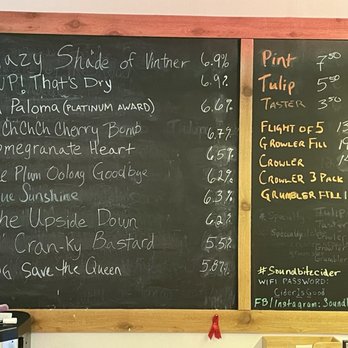 azy Shade of Vintner 6.9%
UP! That's Dry 6.9%
Paloma (PLATINUM AWARD) 6.6%
ChChCh Cherry Bomb 6.7%
omegranate Heart 6.5%
e Plum Oolong Goodbye 6.2%
ue Sunshine 6.3%
he Upside Down 6.2%
Cran-ky Bastard 5.5%
G Save the Queen 5.8%
Pint 7.50
Tulip 5.50
TASTER 3.50
FLIGHT OF 5 13
GROWLER FILL 19
CROWLER 14
CROWLER 3 PACK
GRUMBLER FILL 1
#Soundbitecider
WIFI PASSWORD:
CiderIsGood
FB/Instagram: Soundb